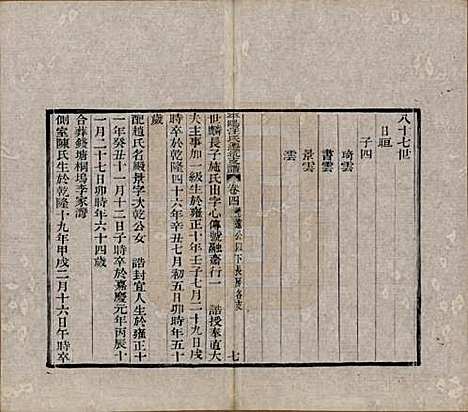 八十七世
日暄
子四
琦雲
書雲
景雲
雲
氏
譜
卷四
公以下長房各支
七
世麟長子施氏出字心傳號融齋行一 誥授奉直大
夫主事加一級生於雍正十年壬子七月二十九日戌
時卒於乾隆四十六年辛丑七月初五日卯時年五十
歲
配趙氏名殿景字大乾公女 誥封宜人生於雍正十
一年癸丑十一月十二日子時卒於嘉慶元年丙辰十
一月二十七日卯時年六十四歲
合葬錢塘桐塢李家灣
側室陳氏生於乾隆十九年甲戌二月十六日午時卒